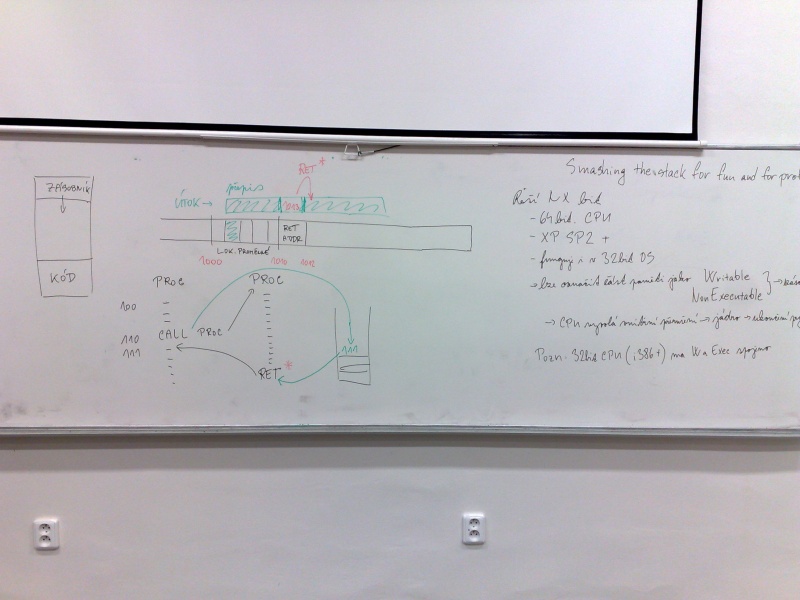 ZÁSOBNÍK
KÓD
ÚTOK →
přepis
RET *
1012
RET
ADDR
LOK. PROMĚNNÉ
1000
1010
1012
PROC
100
110 CALL PROC
111
PROC
RET *
111
Smashing the stack for fun and for
Řeší NX bit
- 64bit. CPU
- XP SP2 +
- funguje i v 32bit OS
→ lze označit část paměti jako Writable
NonExecutable
→ CPU vyvolá vnitřní přerušení → jádro → ukončení
Pozn. 32bit CPU (i386+) má W a Exec spojeno